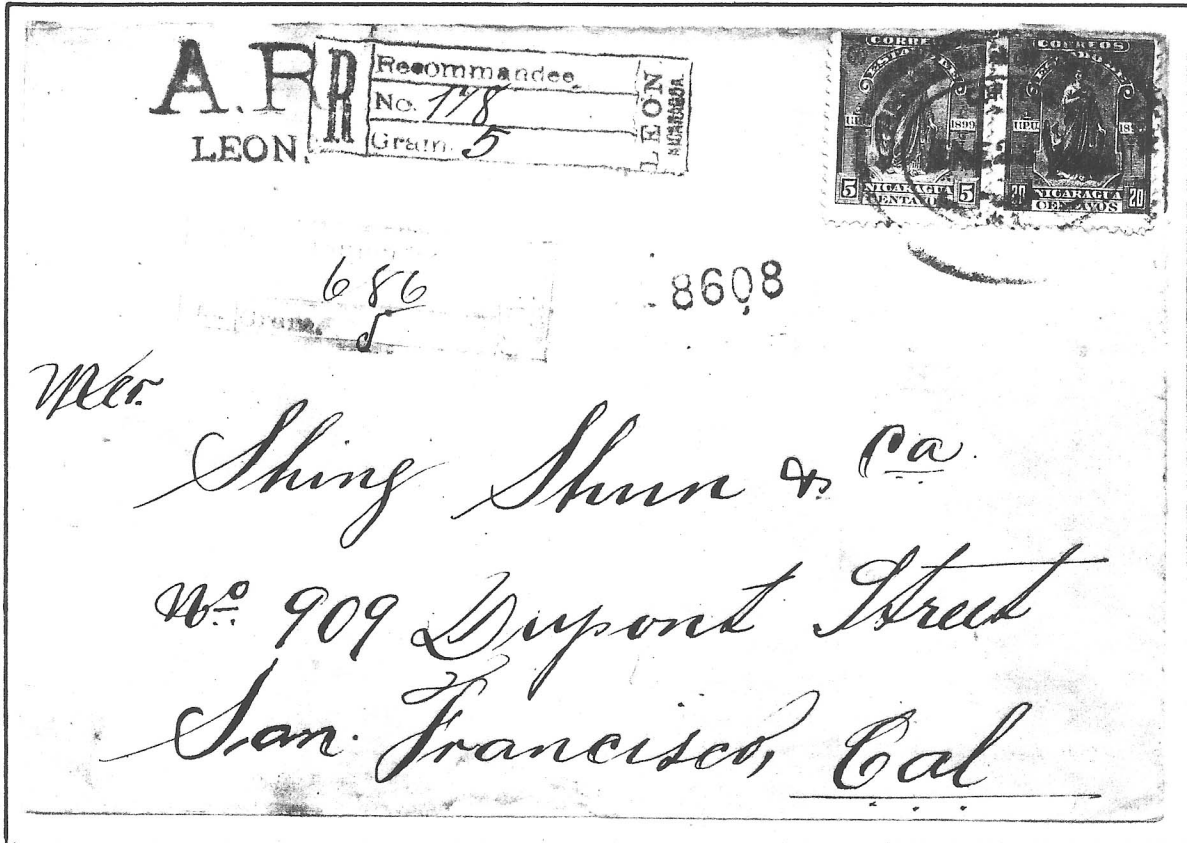 A.R
LEON.
R
Recommandee
No. 178
Gram. 5
LEON
NICARAGUA.
CORREOS
ESTADO DE
U.P.U 1899
5 NICARAGUA 5
CENTAVOS
CORREOS
ESTADO DE
U.P.U 18
20 NICARAGUA 20
CENTAVOS
686
Gram. 5
8608
Shing Shun & Ca
No 909 Dupont Street
San Francisco, Cal